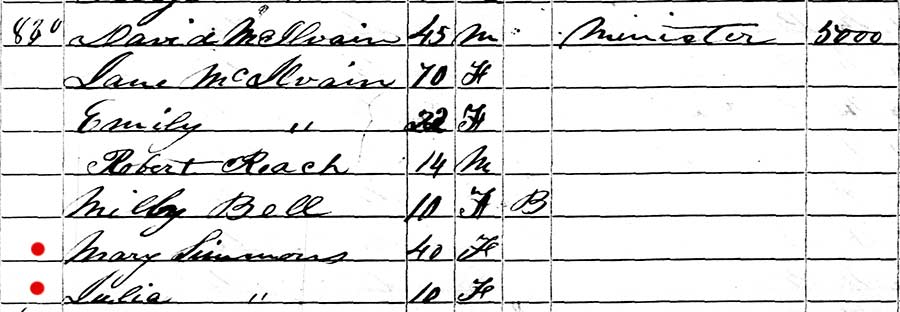 David McIlvain 45 M Minister 5000
Jane McIlvain 70 F
Emily " 22 F
Robert Roach 14 M
Milly Bell 10 F B
Mary Simmons 40 F
Julia " 10 F